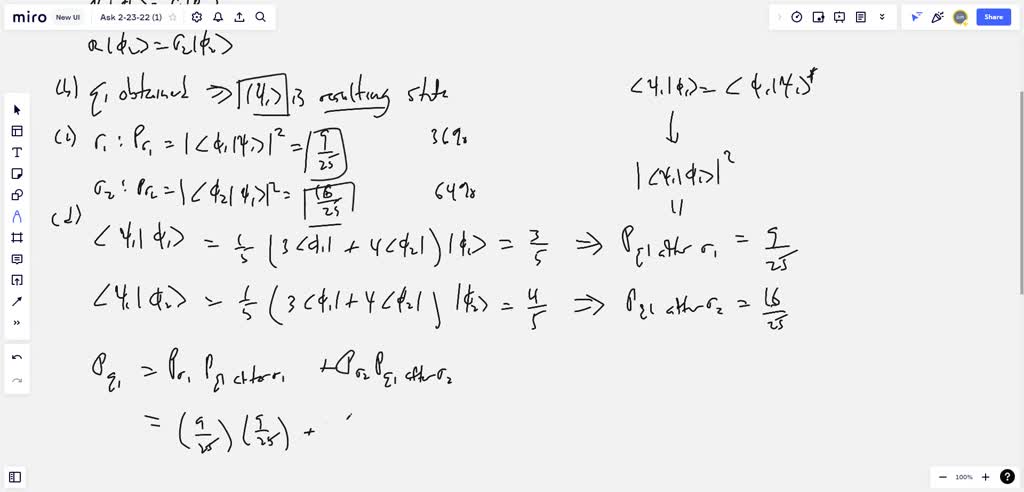 miro New UI Ask 2-23-22 (1)
Share
R|ϕ₂⟩ = r₂|ϕ₂⟩
(b) q₁ obtained ⇒ |ψ₁⟩ is resulting state
⟨ψ₁|ϕ₁⟩ = ⟨ϕ₁|ψ₁⟩*
↓
(c) r₁ : Pr₁ = |⟨ϕ₁|ψ₁⟩|² = 9/25 36%
|⟨ψ₁|ϕ₁⟩|²
r₂ : Pr₂ = |⟨ϕ₂|ψ₁⟩|² = 16/25 64%
(d)
⟨ψ₁|ϕ₁⟩ = 1/5 (3⟨ϕ₁| + 4⟨ϕ₂|) |ϕ₁⟩ = 3/5 ⇒ P q1 after r₁ = 9/25
⟨ψ₁|ϕ₂⟩ = 1/5 (3⟨ϕ₁| + 4⟨ϕ₂|) |ϕ₂⟩ = 4/5 ⇒ P q1 after r₂ = 16/25
P q₁ = P r₁ P q1 after r₁ + P r₂ P q₁ after r₂
= (9/25) (9/25) +
100%